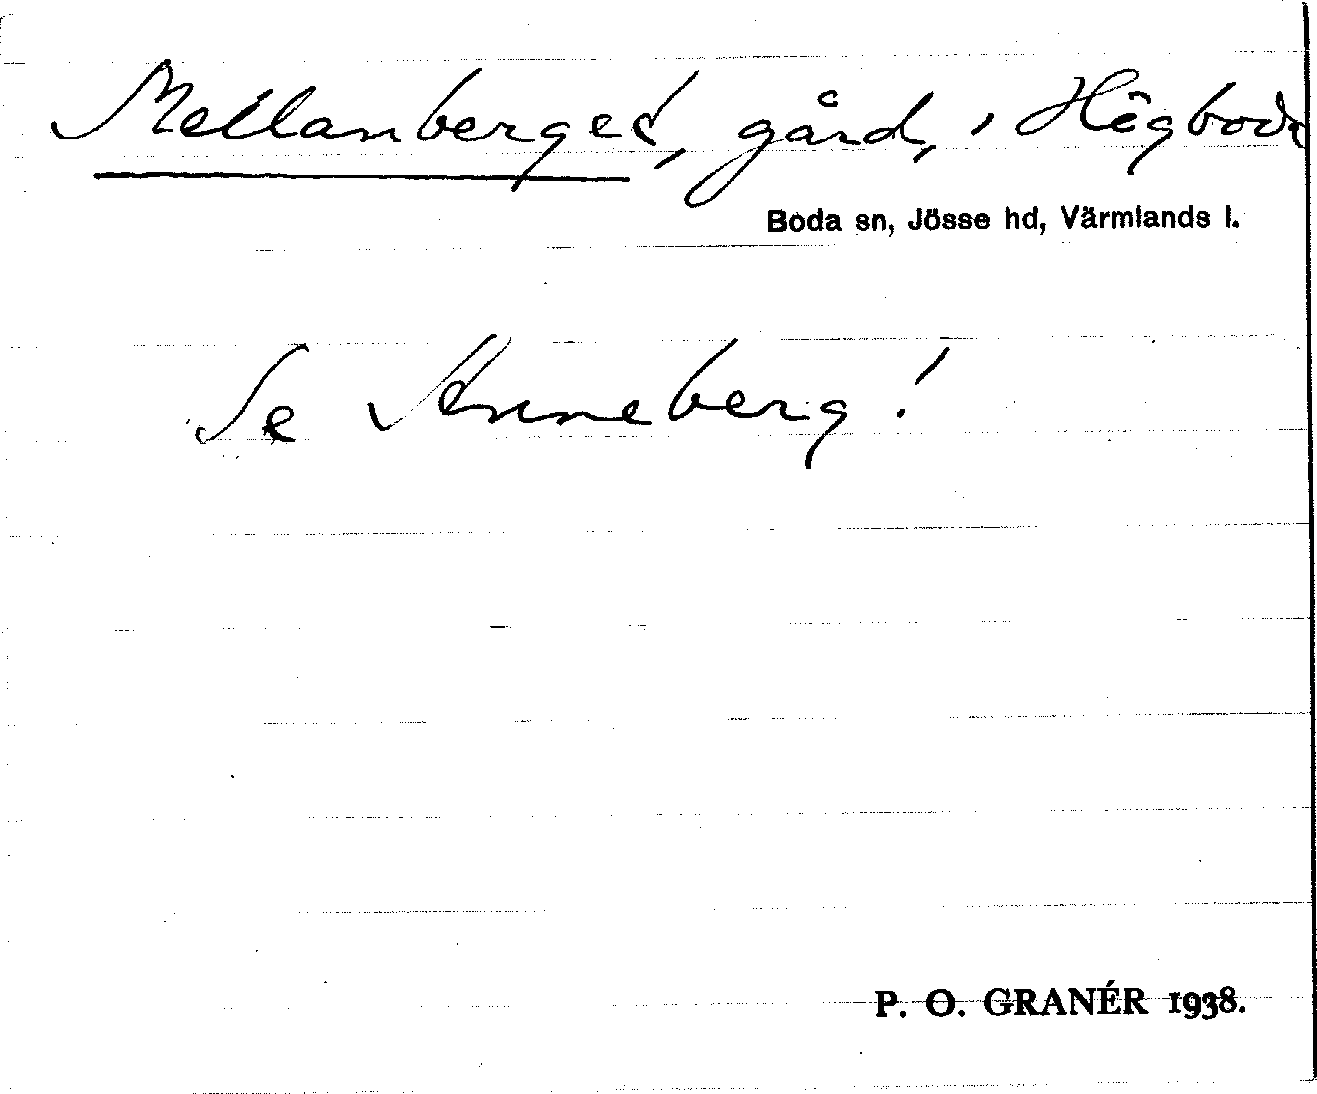 Mellanberget, gård, i Högboda
Boda sn, Jösse hd, Värmlands l.
Se Anneberg!
P. O. GRANÉR 1938.